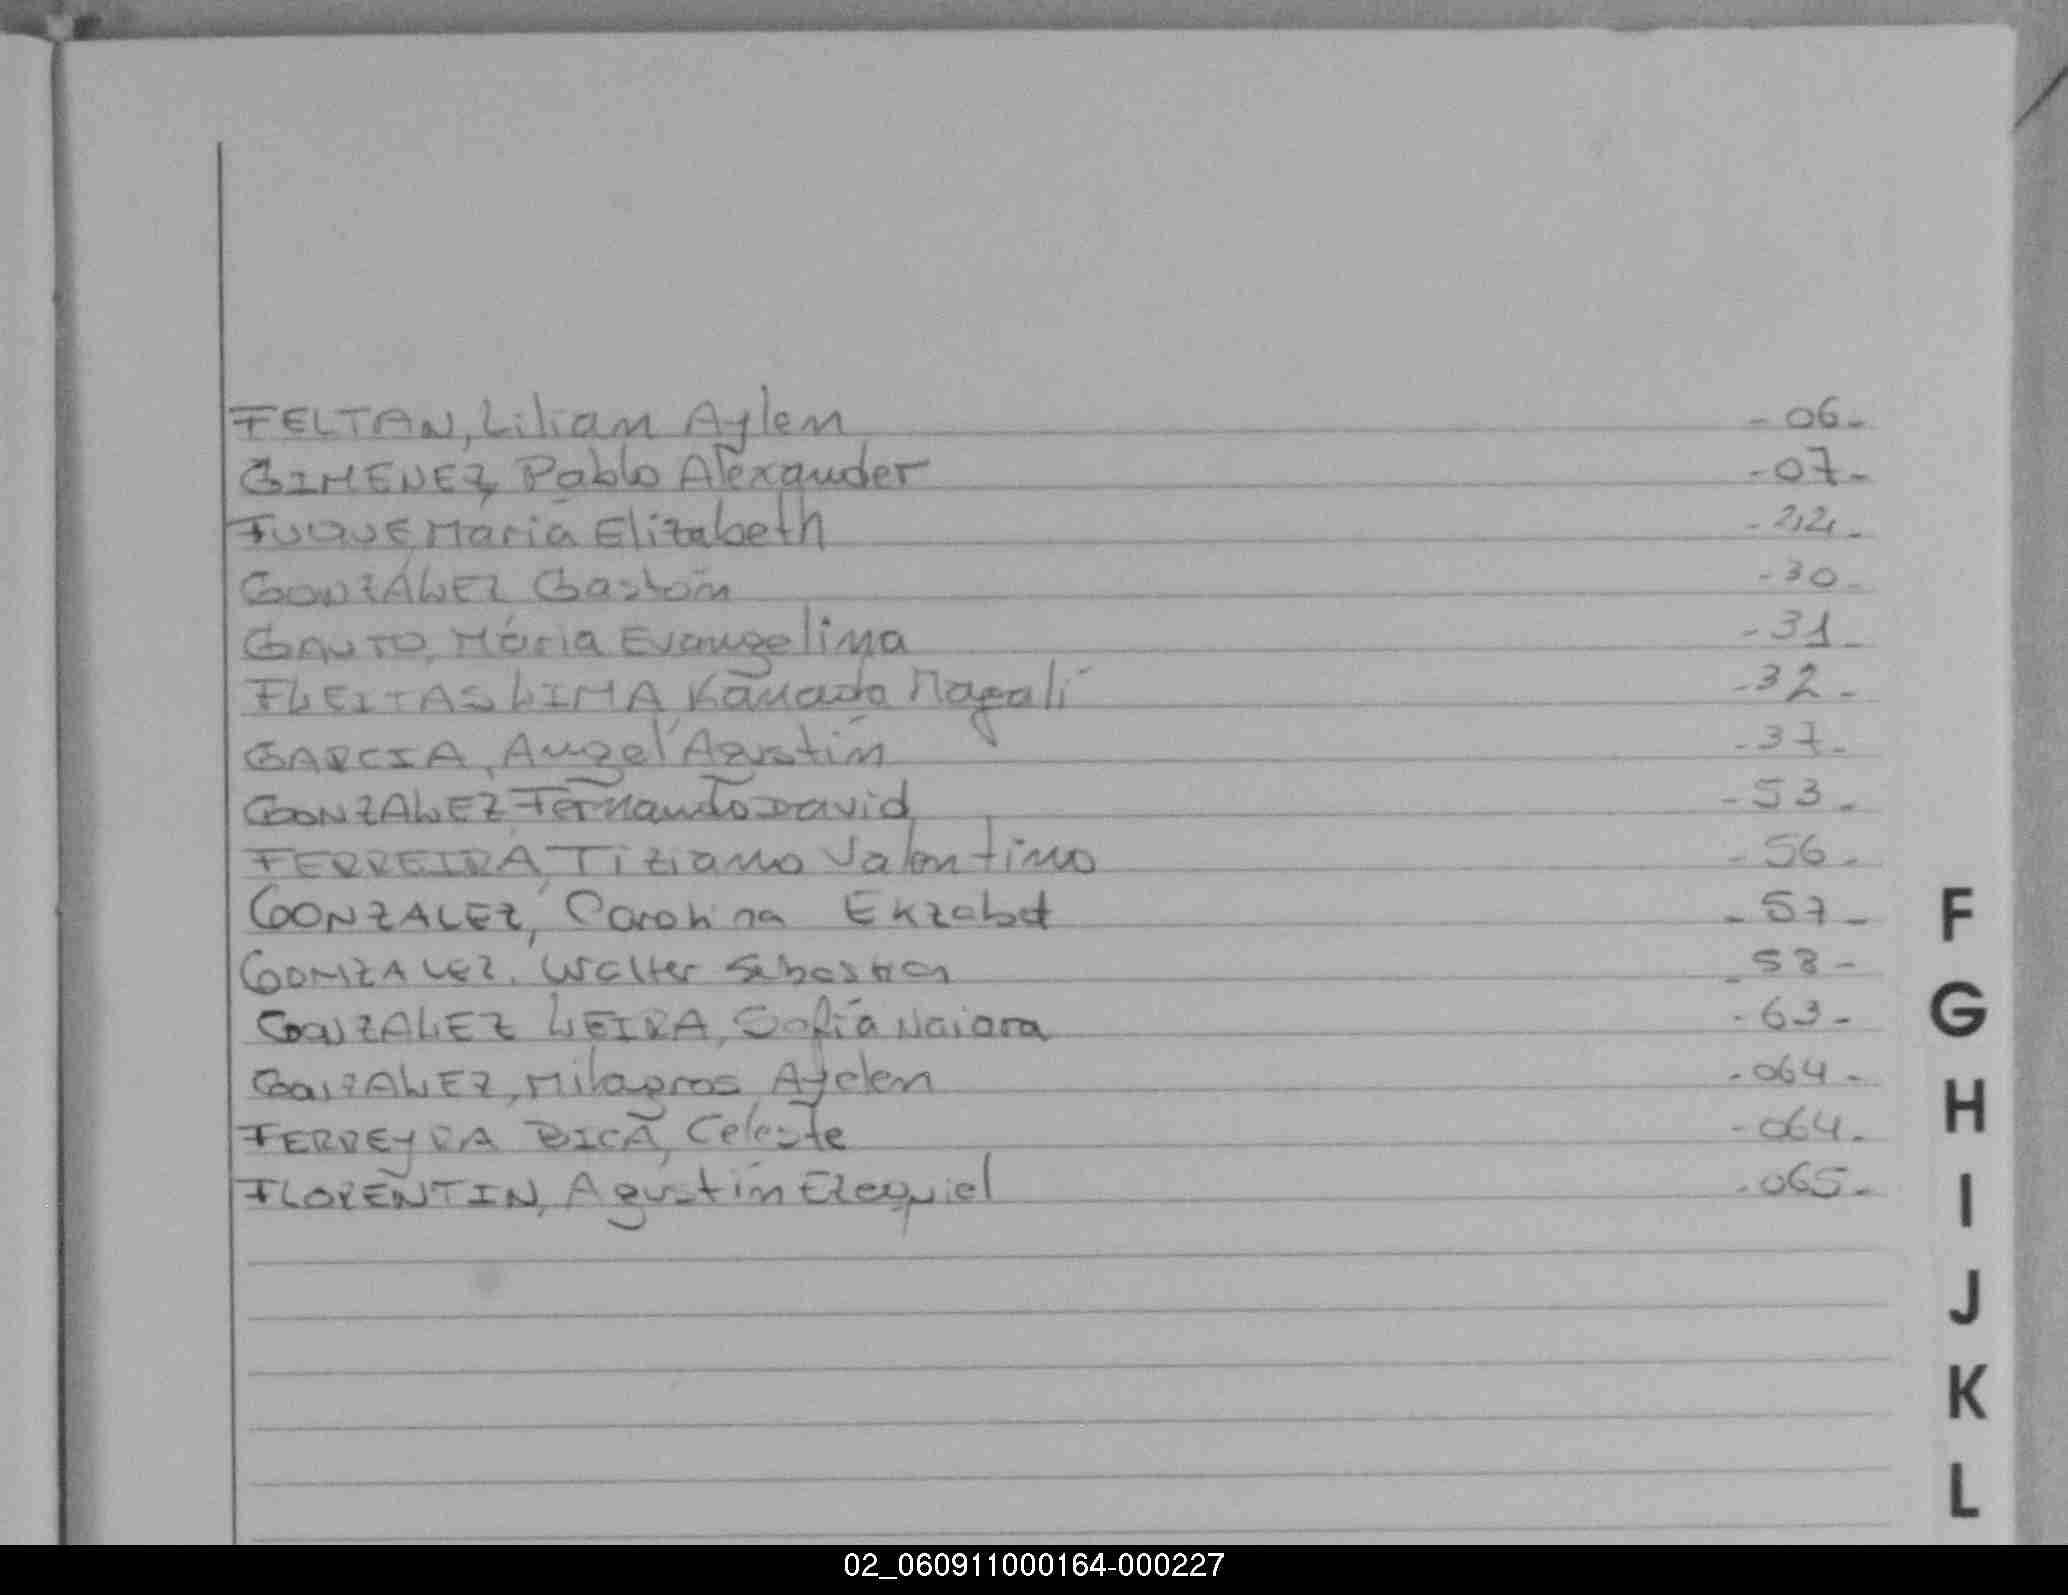 FELTAN, Lilian Aylen -06-
GIMENEZ, Pablo Alexander -07-
FUQUE, María Elizabeth -22-
GONZÁLEZ Gastón -30-
GAUTO, María Evangelina -31-
FLEITAS LIMA Magalí -32-
GARCIA, Angel Agustín -37-
GONZALEZ Fernando David -53-
FERREIRA, Tiziano Valentino -56-
GONZALEZ, Carolina Elizabet -57-
GONZALEZ, Walter Sebastian -58-
GONZALEZ LEIRA, Sofía Naiara -63-
GONZALEZ, Milagros Ayelen -064-
FERREYRA BICA, Celeste -064-
FLORENTIN, Agustín Ezequiel -065-
F
G
H
I
J
K
L
02_060911000164-000227